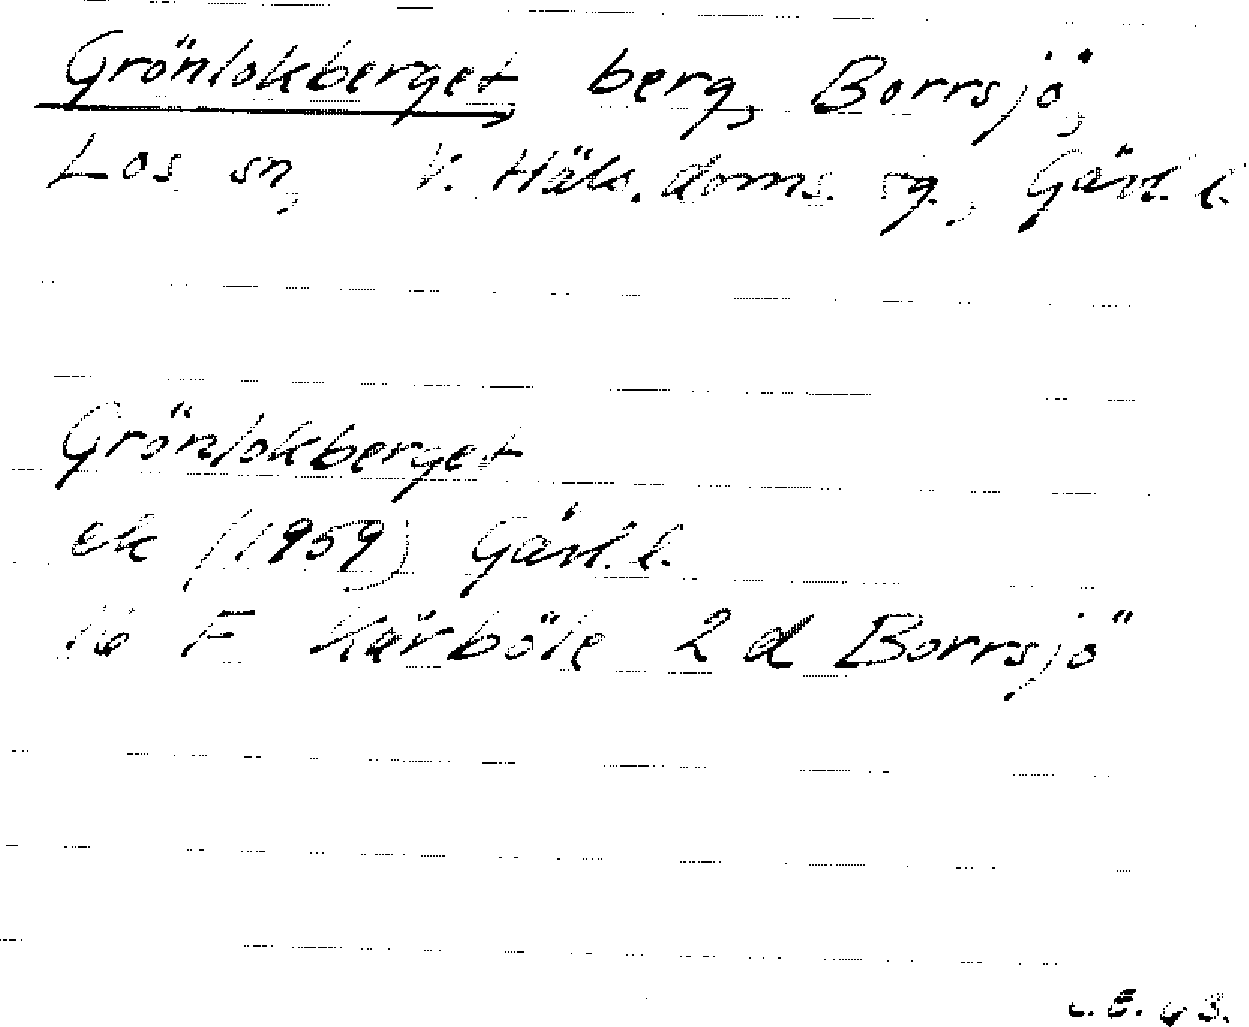 Grönlokberget berg, Borrsjö,
Los sn, V. Häls. doms. sg., Gävl. l.
Grönlokberget
ek (1959) Gävl. l.
16 F Kårböle 2 d Borrsjö